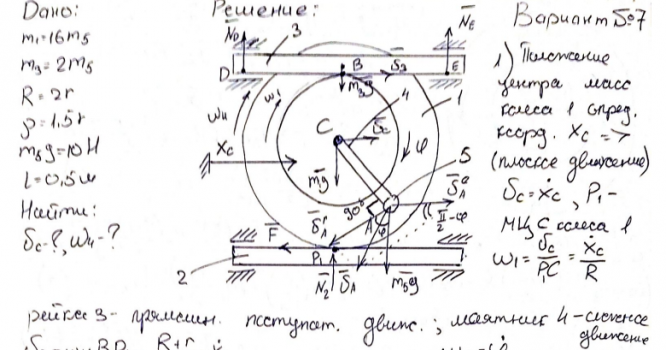 Дано:
m₁=16m₅
m₃=2m₅
R=2r
ρ=1,5r
m₅g=10Н
l=0,5м
Найти:
υ_C-?, ω₄-?
Решение:
N_D
3
N_E
D
B
υ₃
E
m₃g
4
1
ω₄
ω₁
C
υ_C
φ
X_C
mg
5
90°
A
φ
π/2-φ
F
2
P₁
N₂
υ_A
m₅g
Вариант №7
1) Положение
центра масс
колеса 1 опред.
коорд. X_C =>
(плоское движение)
υ_C=ẋ_C, P₁ -
МЦС колеса 1
ω₁=υ_C/P₁C=ẋ_C/R
рейка 3- прямолин. поступат. движ.; маятник 4-сложное
движение
R+r